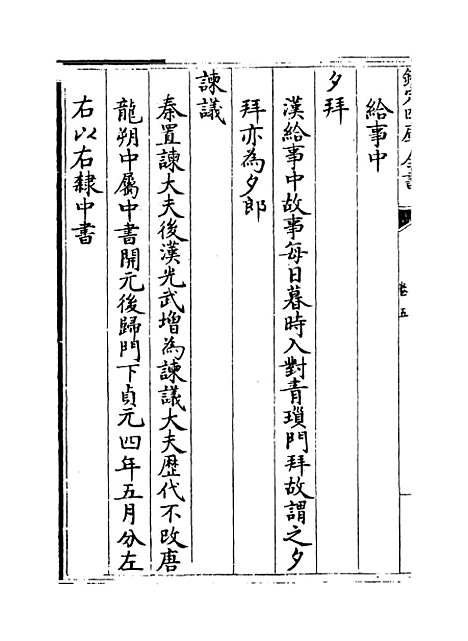 欽定四庫全書
卷五
給事中
夕拜
漢給事中故事每日暮時入對青瑣門拜故謂之夕
拜亦為夕郎
諫議
秦置諫大夫後漢光武增為諫議大夫歴代不改唐
龍朔中屬中書開元後歸門下貞元四年五月分左
右以右隸中書